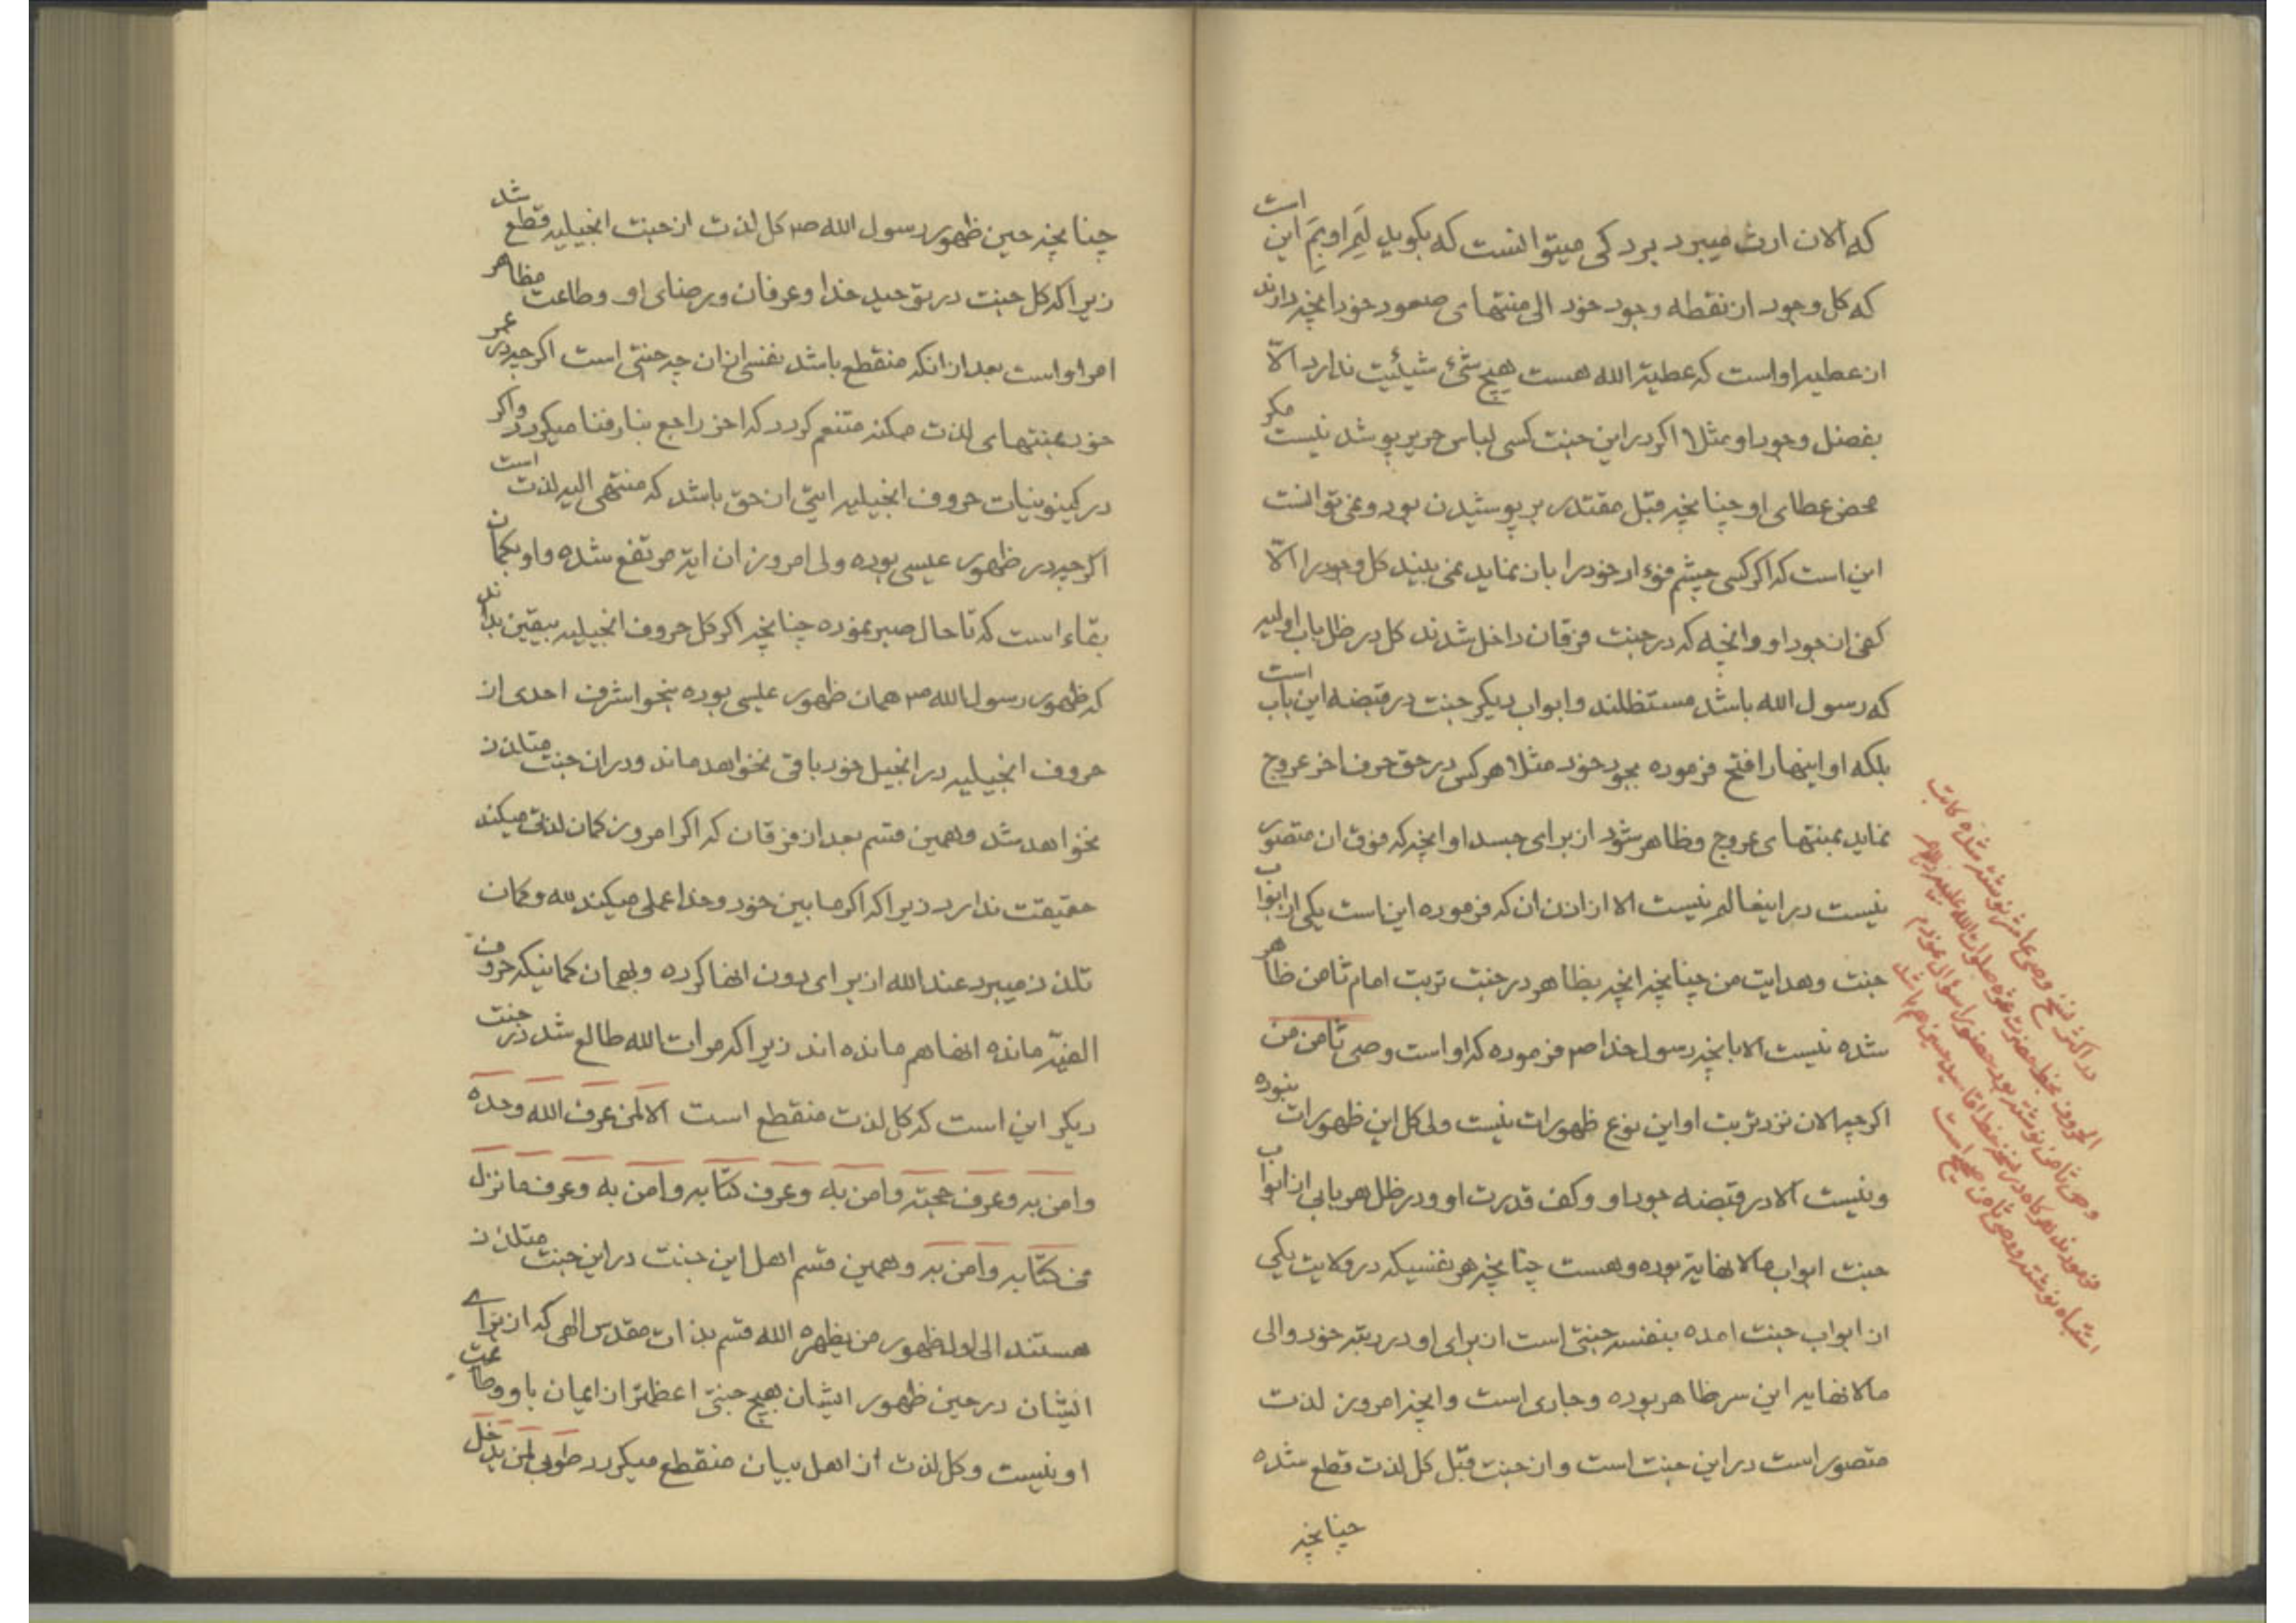 که الان ارث میبرد برد کی میتوانست که بگوید لِمَ او بِمَ این است
که کل وجود از نقطه وجود خود الی منتهای صعود خود انچه دارند
از عطیه او است که عطیة الله هست هیچ شیٔ شیئیت ندارد الّا
بفضل وجود او مثلا اکر در این جنت کسی لباس حریر پوشد نیست مکر
محض عطای او چنانچه قبل مقتدر بر پوشیدن بود و نمی توانست
این است که اکر کسی چشم فوءاد خود را بان نماید نمی بیند کل وجود را الّا
کفی از جود او و انچه که در جنت فرقان داخل شدند کل در ظل باب اولیه
که رسول الله باشد مستظلند و ابواب دیکر جنت در قبضه این باب است
بلکه او اینها را فتح فرموده بجود خود مثلا هر کسی در حق حرف اخر عروج
نماید بمنتهای عروج و ظاهر شود از برای جسد او انچه که فوق ان متصور
نیست در اینعالم نیست الا از اذن ان که فرموده این است یکی از ابواب
جنت و هدایت من چنانچه انچه بظاهر در جنت تربت امام ثامن ظاهر
شده نیست الا بانچه رسول خدا ص فرموده که او است وصی ثامن من
اکرچه الان نزد تربت او این نوع ظهورات نیست ولی کل این ظهورات نبوده
و نیست الا در قبضه جود او و کف قدرت او و در ظل هر بابی از ابواب
جنت ابواب مالانهایة بوده و هست چنانچه هر نفسیکه در ولایت یکی
از ابواب جنت امده بنفسه جنتی است از برای او در رتبه خود و الی
مالانهایه این سر ظاهر بوده و جاری است و انچه امروز لذت
متصور است در این جنت است و از جنت قبل کل لذت قطع شده
چنانچه
در اکثر نسخ وصی عاشر نوشته شده کاتب
الحروف بخط حضرت
وصی ثامن نوشته بود حضور سؤال نمودم
فرمودند هرکاه در نسخه خط اقا سید حسین هم باشد
اشتباه نوشته و وصی ثامن صحیح است
چنانچه حین ظهور رسول الله ص کل لذت از جنت انجیلیه قطع شد
زیرا که کل جنت در توحید خدا و عرفان و رضای او و طاعت مظاهر
امر او است بعد از انکه منقطع باشد نفسی از ان چه جنتی است اکرچه در عمر
خود بمنتهای لذت ممکنه متنعم کردد که اخر راجع بنار فنا میکردد و اکر
در کینونیات حروف انجیلیه ایتی از حق باشد که منتهی الیه لذت است
اکرچه در ظهور عیسی بوده ولی امروز ان ایة مرتفع شده و او بکمان
بقاء است که تا حال صبر نموده چنانچه اکر کل حروف انجیلیه بیقین بدانند
که ظهور رسول الله ص همان ظهور عیسی بوده بنحو اشرف احدی از
حروف انجیلیه در انجیل خود باقی نخواهد ماند و در ان جنت متلذذ
نخواهد شد و همین قسم بعد از فرقان که اکر امروز کمان لذتی میکند
حقیقت ندارد زیرا که اکر ما بین خود و خدا عملی میکند لله و کمان
تلذذ میبرد عند الله از برای دون انها کرده و بهمان کمانیکه حروف
الفیّه مانده انها هم مانده اند زیرا که مرات الله طالع شد در جنت
دیکر این است که کل لذت منقطع است الا لمن عرف الله وحده
و امن به و عرف حجته و امن به و عرف کتابه و امن به و عرف ما نزل
فی کتابه و امن به و همین قسم اهل این جنت در این جنت متلذذ
هستند الی اول ظهور من یظهره الله قسم بذات مقدس الهی که از برای
ایشان در حین ظهور ایشان هیچ جنتی اعظمتر از ایمان باو و طاعت
او نیست و کل لذت از اهل بیان منقطع میکردد طوبی لمن یدخل